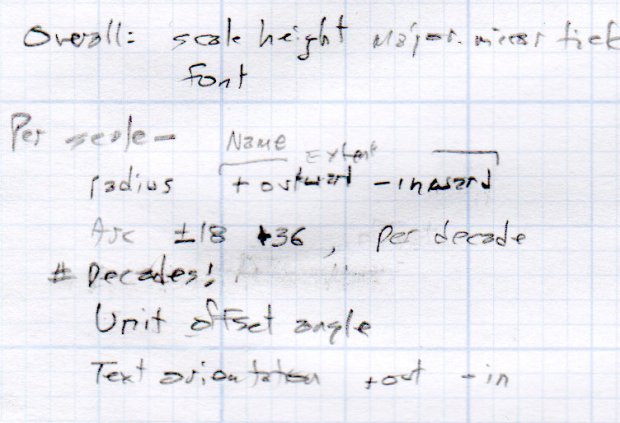 Overall: scale height Major.minor tick
font
Per scale -
Name Extent
radius + outward - inward
Arc ±18 36, per decade
# Decades!
Unit offset angle
Text orientation +out -in